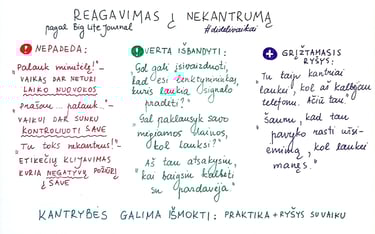 REAGAVIMAS Į NEKANTRUMĄ
pagal Big Life Journal
#didelivaikai
NEPADEDA:
"Palauk minutėlę!" -
VAIKAS DAR NETURI
LAIKO NUOVOKOS
"Prašau... palauk.." -
VAIKUI DAR SUNKU
KONTROLIUOTI SAVE
"Tu toks nekantrus!" -
ETIKEČIŲ KLIJAVIMAS
KURIA NEGATYVŲ POŽIŪRĮ
Į SAVE
VERTA IŠBANDYTI:
"Gal gali įsivaizduoti,
kad esi lenktynininkas,
kuris laukia signalo
pradėti?"
"Gal paklausyk savo
mėgiamos dainos,
kol lauksi?"
"Aš tau atsakysiu,
kai baigsiu kalbėti
su pardavėja."
GRĮŽTAMASIS
RYŠYS:
"Tu taip kantriai
laukei, kol aš kalbėjau
telefonu. Ačiū tau."
"Šaunu, kad tau
pavyko rasti užsi-
ėmimą, kol laukei
manęs."
KANTRYBĖS GALIMA IŠMOKTI: PRAKTIKA + RYŠYS SU VAIKU